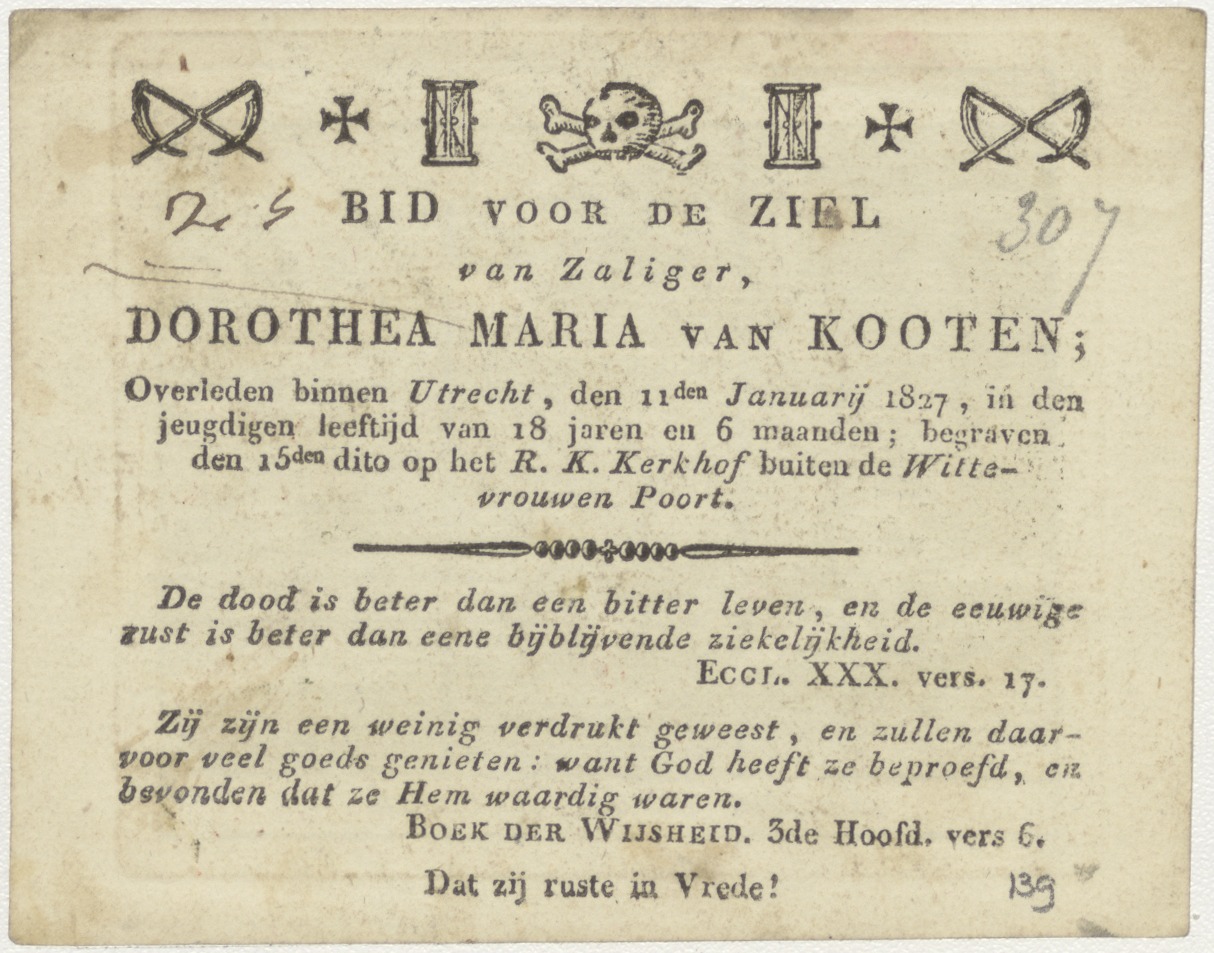 BID VOOR DE ZIEL
307
van Zaliger,
DOROTHEA MARIA VAN KOOTEN;
Overleden binnen Utrecht, den 11den Januarij 1827, in den
jeugdigen leeftijd van 18 jaren en 6 maanden; begraven
den 15den dito op het R. K. Kerkhof buiten de Witte-
vrouwen Poort.
De dood is beter dan een bitter leven, en de eeuwige
rust is beter dan eene bijblijvende ziekelijkheid.
ECCL. XXX. vers. 17.
Zij zijn een weinig verdrukt geweest, en zullen daar-
voor veel goeds genieten: want God heeft ze beproefd, en
bevonden dat ze Hem waardig waren.
BOEK DER WIJSHEID. 3de Hoofd. vers 6.
Dat zij ruste in Vrede!
139